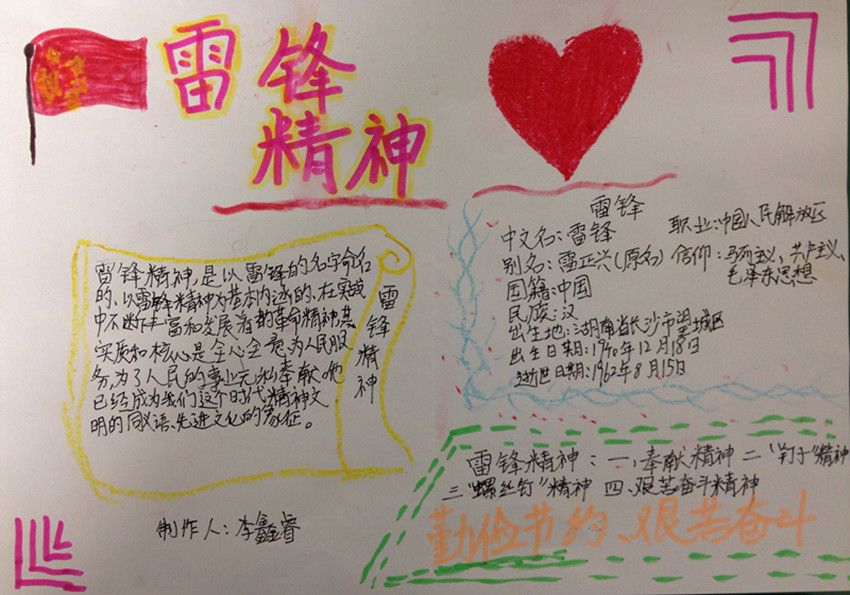 雷锋
精神
雷锋精神,是以雷锋的名字命名
的、以雷锋精神为基本内涵的、在实践
中不断丰富和发展着的革命精神,其
实质和核心是全心全意为人民服
务,为了人民的事业无私奉献。他
已经成为我们这个时代精神文
明的同义语、先进文化的象征。
雷锋精神
制作人:李鑫睿
雷锋
中文名:雷锋
别名:雷正兴(原名)
国籍:中国
民族:汉
出生地:湖南省长沙市望城区
出生日期:1940年12月18日
逝世日期:1962年8月15日
职业:中国人民解放区
信仰:马列主义、共产主义、
毛泽东思想
雷锋精神:一、奉献精神 二"钉子"精神
三"螺丝钉"精神 四、艰苦奋斗精神
勤俭节约、艰苦奋斗